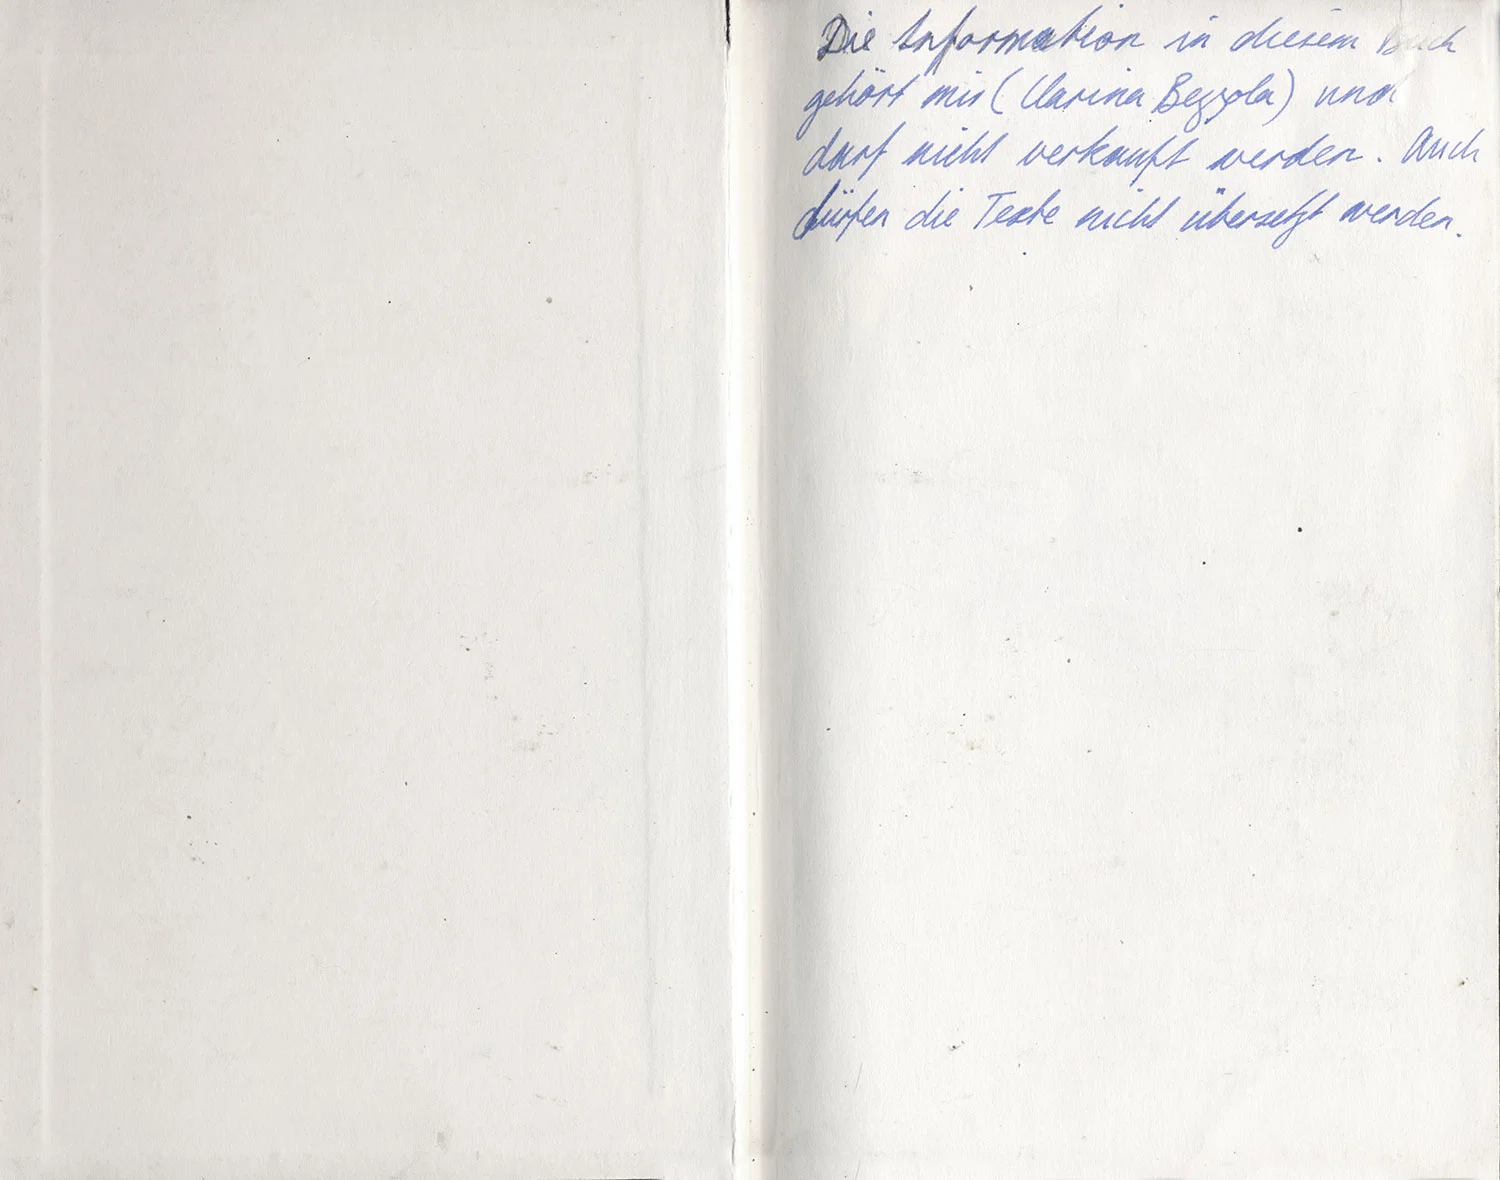 Die Information in diesem Buch
gehört mir (Clarina Bezzola) und
darf nicht verkauft werden. Auch
dürfen die Texte nicht übersetzt werden.